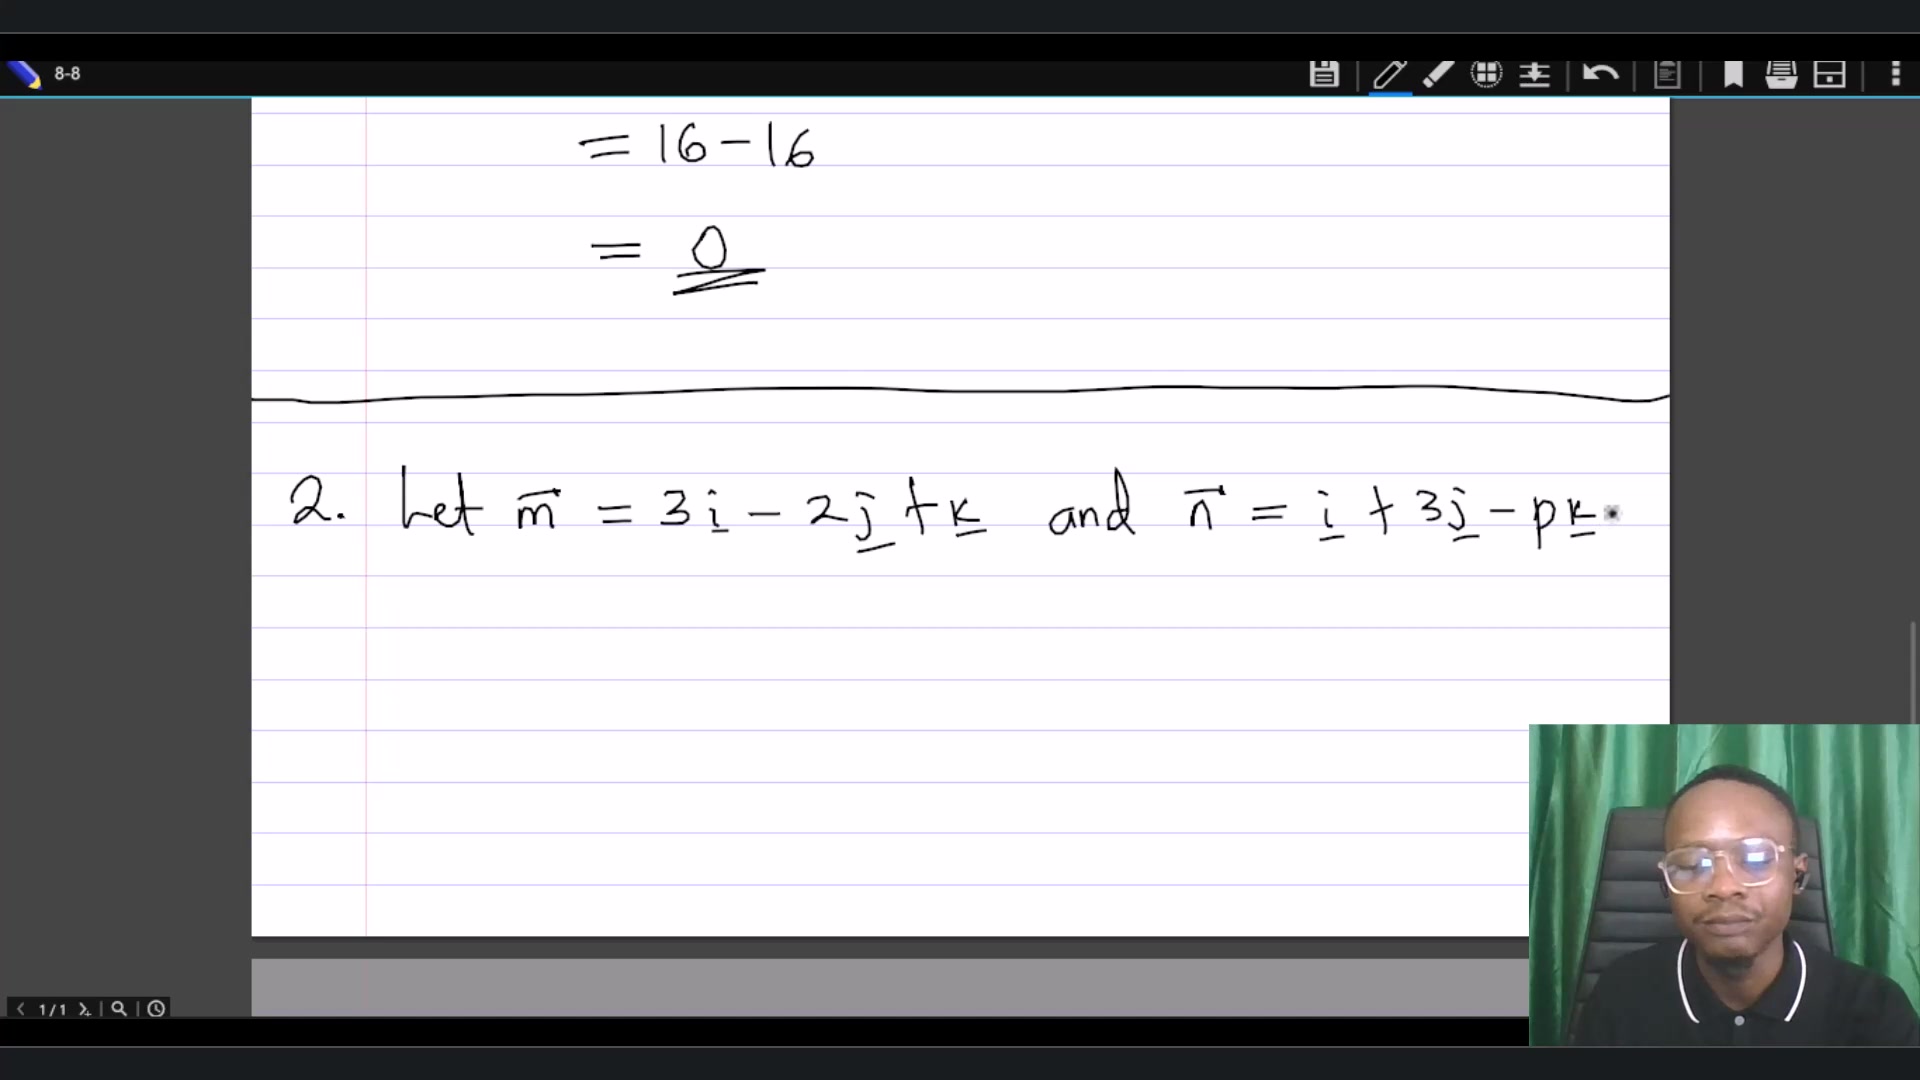 8-8
= 16 - 16
= 0
2. Let m⃗ = 3i - 2j + k and n⃗ = i + 3j - pk
1/1